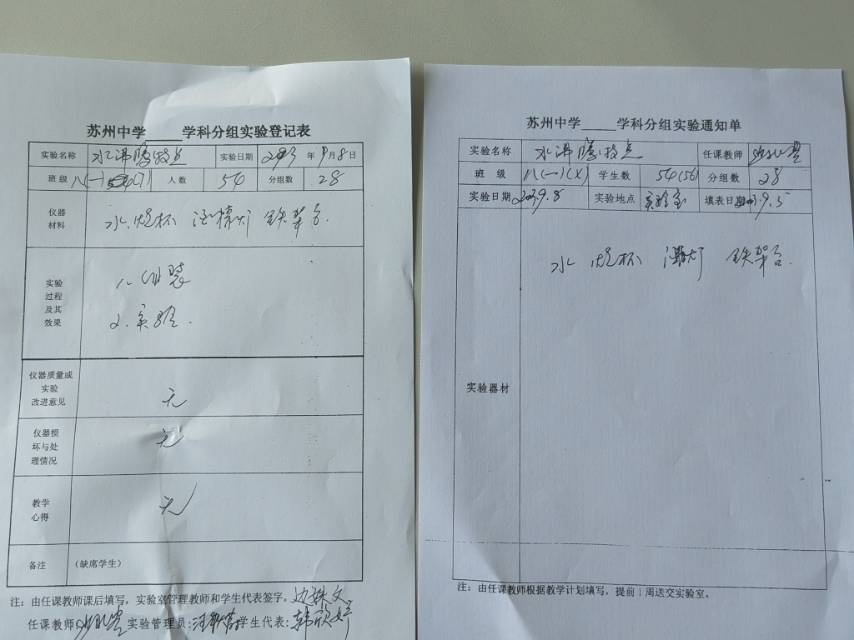 苏州中学_____学科分组实验登记表
实验名称 水沸腾特点 实验日期 年 9月8日
班级 八(一) 人数 54 分组数 28
仪器材料 水 烧杯 酒精灯 铁架台
实验过程及其效果
1、组装
2、实验
仪器质量或实验改进意见 无
仪器损坏与处理情况 无
教学心得 无
备注 (缺席学生)
注：由任课教师课后填写，实验室管理教师和学生代表签字。
任课教师: 实验管理员: 学生代表: 韩欣婷
苏州中学_____学科分组实验通知单
实验名称 水沸腾特点 任课教师
班级 八(一) 学生数 54(56) 分组数 28
实验日期 9.8 实验地点 实验室 填表日 9.5
实验器材
水 烧杯 酒精灯 铁架台
注：由任课教师根据教学计划填写，提前1周送交实验室。